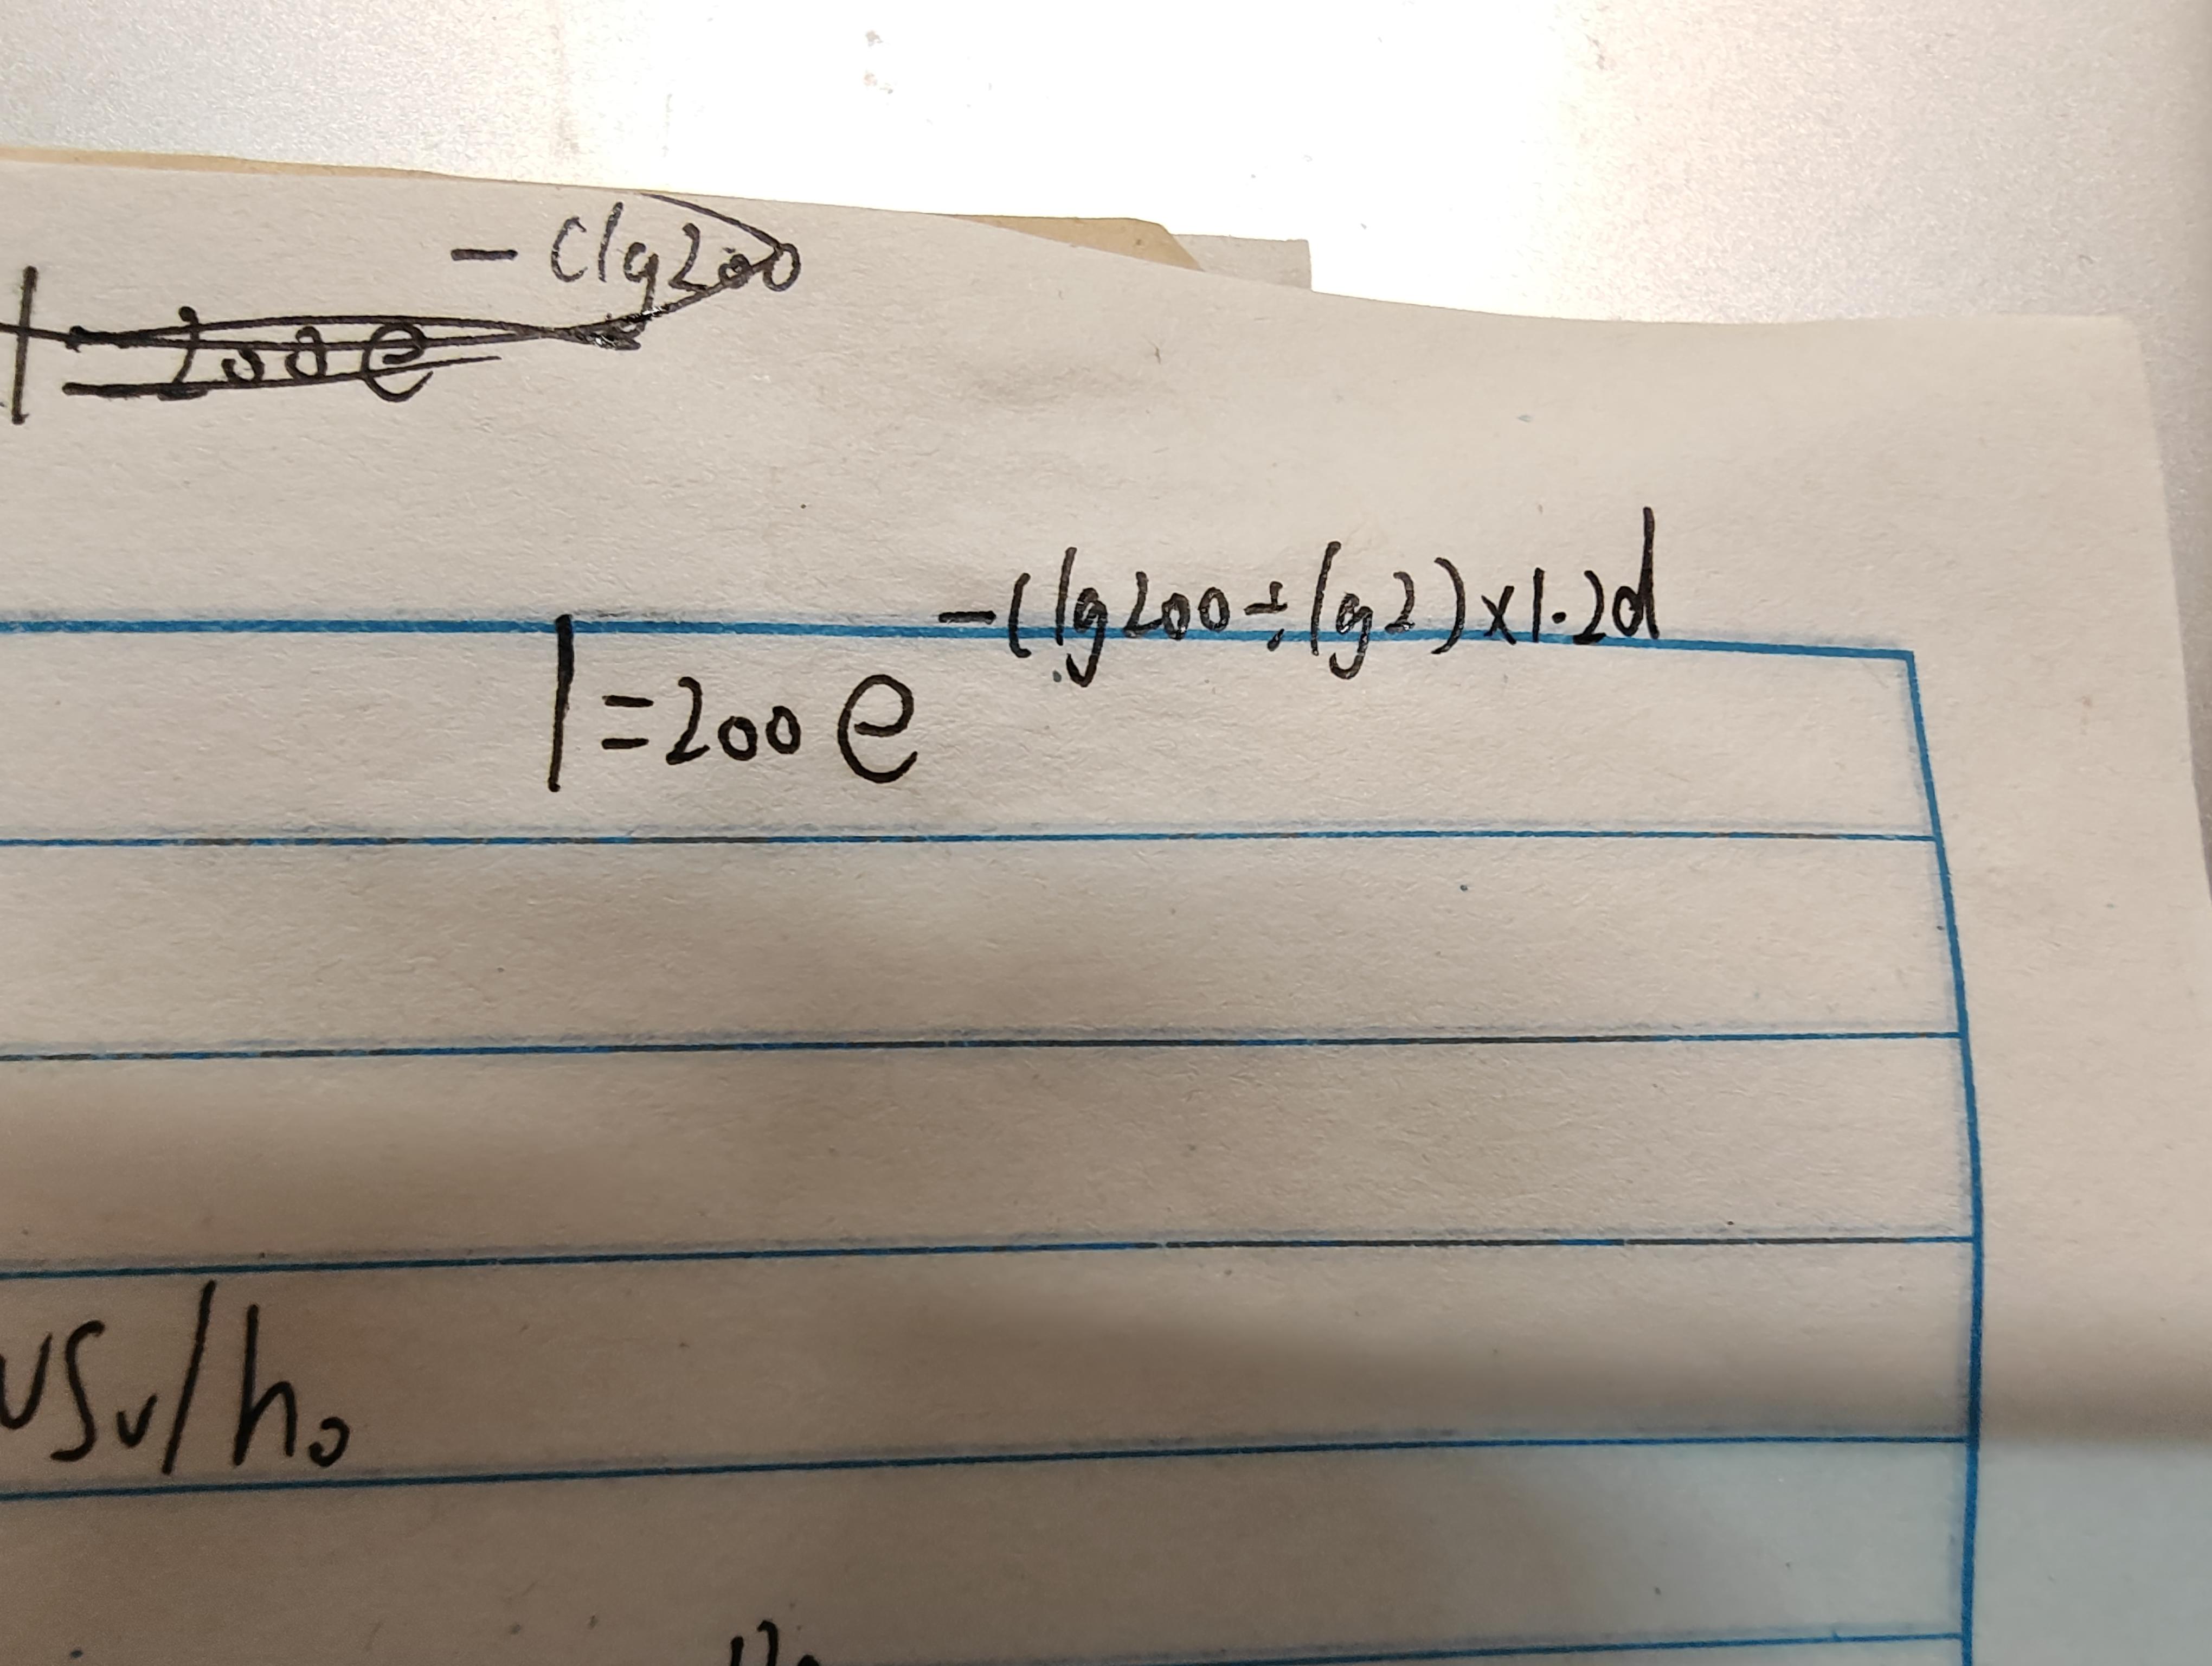 1 = 200e^-(lg200
1=200e^-(lg200÷lg2)×1.2d
uSv/h。